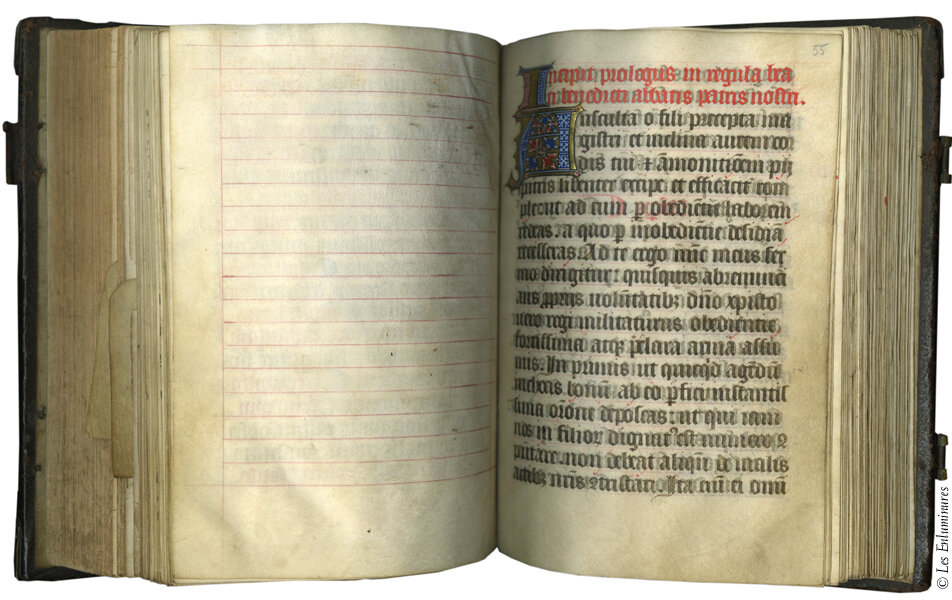 55
Incipit prologus in regula bea
ti benedicti abbatis patris nostri.
Ausculta o fili precepta ma
gistri et inclina aurem cor
dis tui ⁊ āmonitiōem pij
patris libenter excipe et efficacit̾ com
ple ut ad eum ꝑ obedientie laborem
redeas: a quo ꝑ inobedientie desidiā
recesseras. Ad te ergo nūc meus ser
mo dirigitur: quisquis abrenunci
ans ꝓprijs uoluntatibꝫ dn̄o xp̄isto
uero regi militaturus obedientie
fortissima atqꝫ p̄clara arma assu
mis. In primis ut quicq̇d agēdū
inchoas bonum ab eo ꝑfici instantis
sima or̄one deposcas: ut qui iam
nos in filioꝝ dignatꝰ est numero ↄ̄
putare. non debeat aliqn̄ de malis
actibꝫ nr̄is ↄ̄tristari. Ita enī ei omī
© Les Enluminures